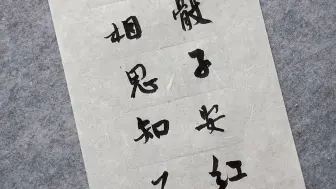 骰子安红
相思知